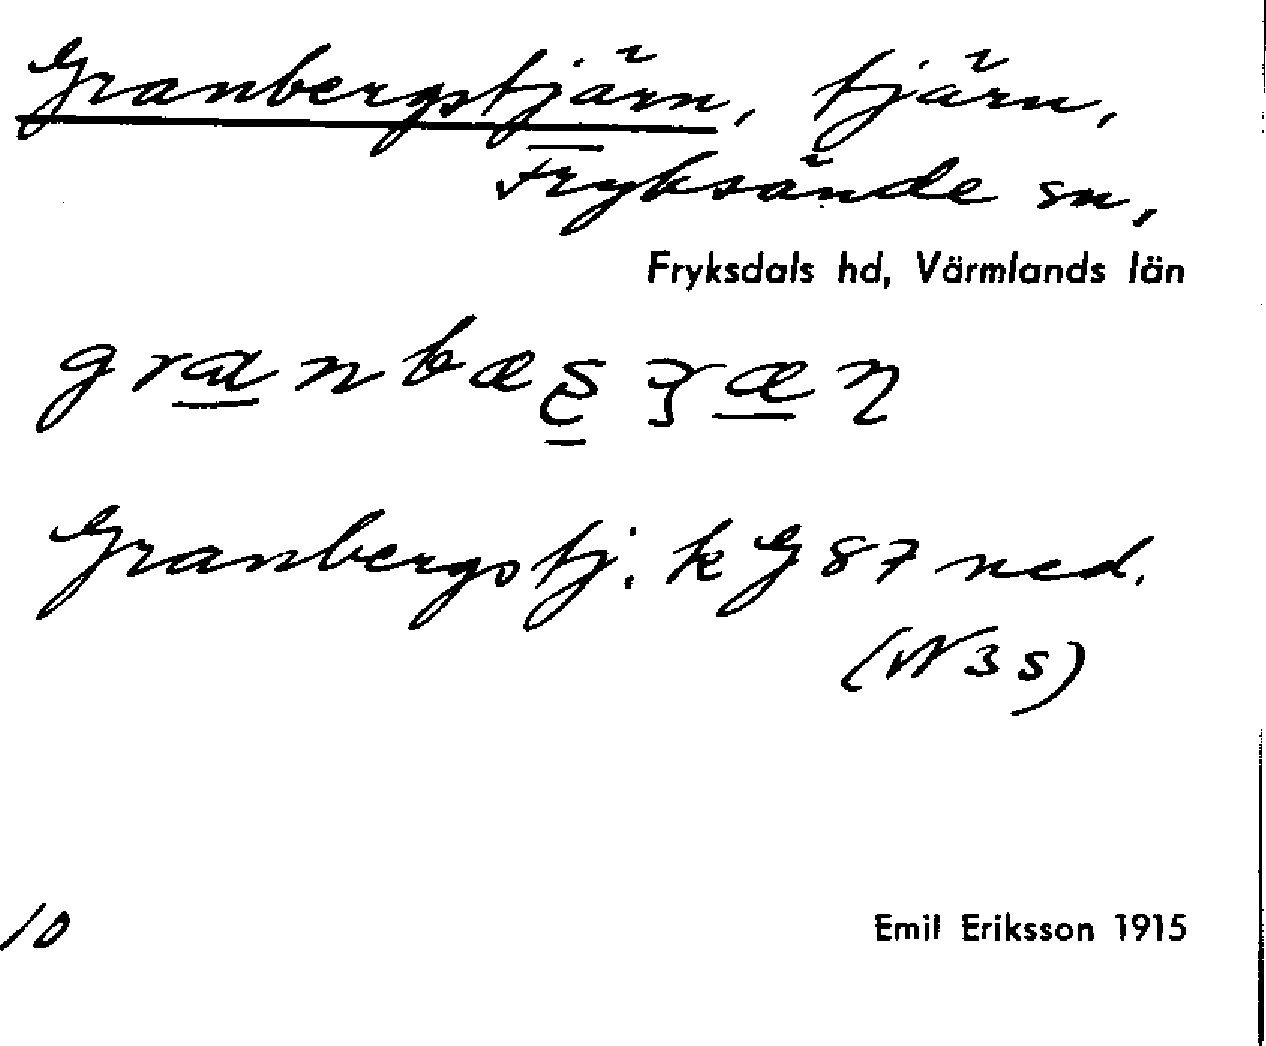 Granbergstjärn, tjärn,
Fryksände sn,
Fryksdals hd, Värmlands län
Granbergstj. k G 87 ned.
(W 3 s)
10
Emil Eriksson 1915